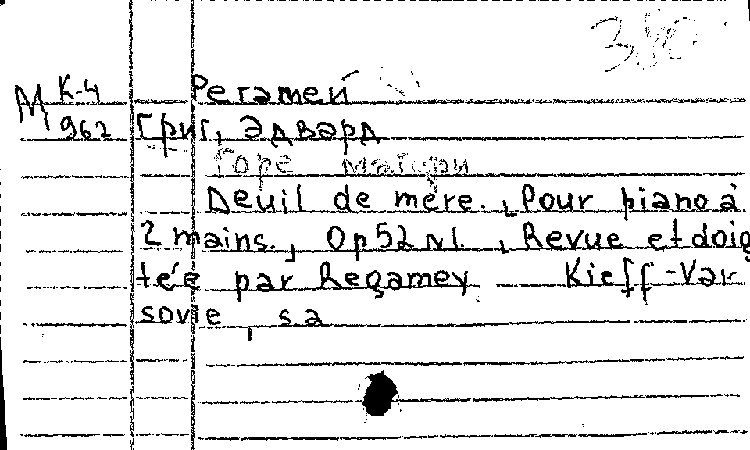 3.80
М К-4 Регамей
962 Григ, Эдвард
Горе матери
Deuil de mère., Pour piano à
2 mains., Op 52 N1. , Revue et doig
teé par Regamey Kieff-Var
sovie, s.a